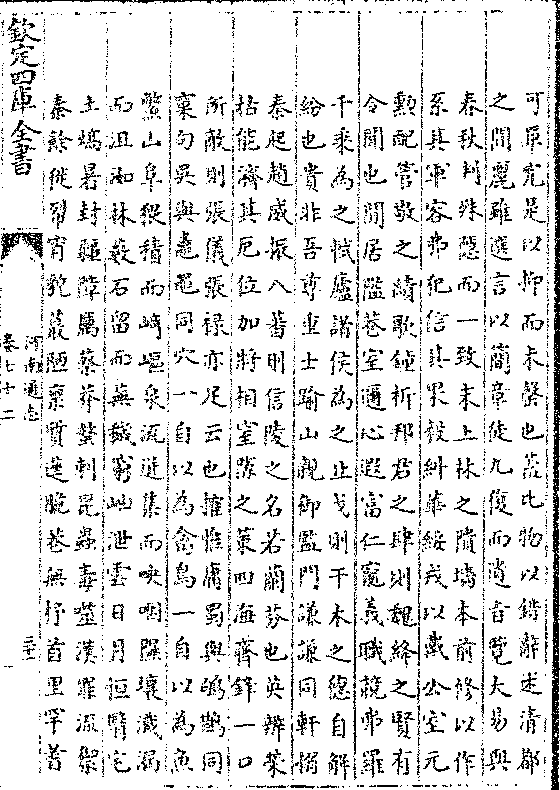 可單究是以抑而未罄也蓋比物以錯辭述清都
之閒麗雖選言以簡章徒九復而遺旨覽大易與
春秋判殊隱而一致末上林之隤墻本前修以作
系其軍容弗犯信其果毅糾華綏戎以戴公室元
勲配管敬之績歌鍾析邦君之肆則魏絳之賢有
令聞也閒居隘巷室邇心遐富仁寵義職競弗羅
千乘為之軾廬諸侯為之止戈則干木之德自解
紛也貴非吾尊重士踰山親御監門謙謙同軒搦
秦起趙威振八蕃則信陵之名若蘭芬也英辨榮
枯能濟其厄位加將相窒隙之策四海齊鋒一口
所敵則張儀張祿亦足云也搉惟庸蜀與鴝鵲同
窠句吳與鼃黽同穴一自以為禽鳥一自以為魚
鼈山阜猥積而崎嶇泉流迸集而咉咽隰壤瀸漏
而沮洳林藪石留而蕪穢窮岫泄雲日月恒翳宅
土熇暑封疆障癘蔡莽螫刺昆蟲毒噬漢罪流禦
秦餘徙帑宵貌蕞陋稟質遳脆巷無杼首里罕耆
欽定四庫全書
河南通志
卷七十二
二十一